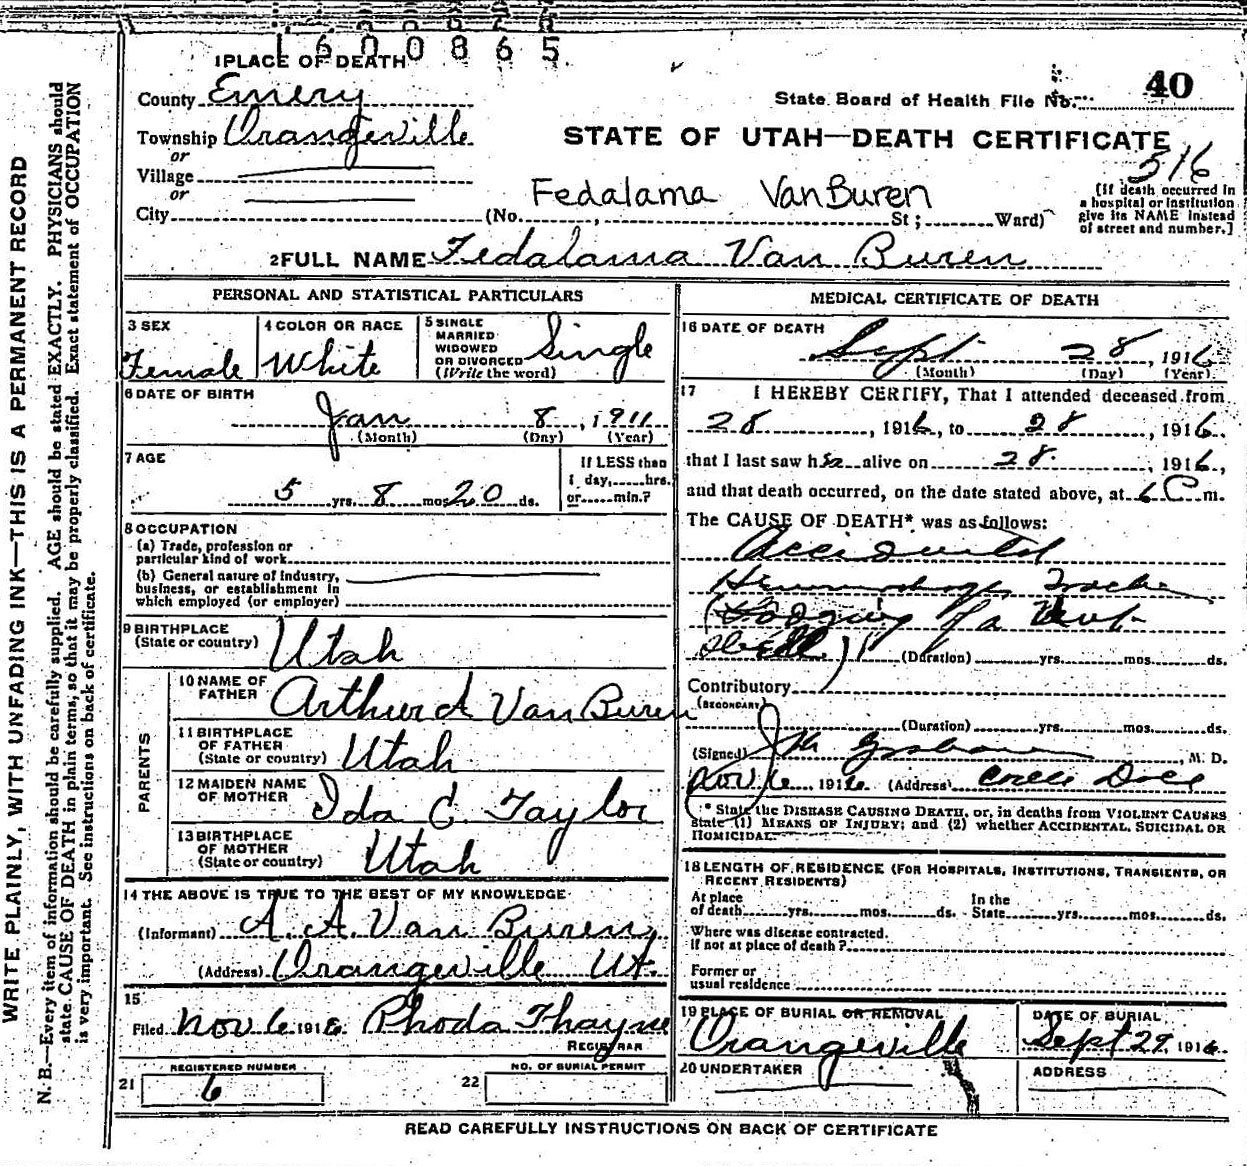 1600865
1 PLACE OF DEATH
County Emery
State Board of Health File No. 40
Township Orangeville
STATE OF UTAH—DEATH CERTIFICATE
or
516
Village
or
Fedalama VanBuren
City (No. , St; Ward)
(If death occurred in
a hospital or institution
give its NAME instead
of street and number.]
2 FULL NAME Fedalama Van Buren
PERSONAL AND STATISTICAL PARTICULARS
3 SEX
Female
4 COLOR OR RACE
White
5 SINGLE
MARRIED
WIDOWED
OR DIVORCED
(Write the word)
Single
6 DATE OF BIRTH
Jan 8, 1911
(Month) (Day) (Year)
7 AGE
5 yrs. 8 mos. 20 ds.
If LESS than
1 day, hrs.
or min.?
8 OCCUPATION
(a) Trade, profession or
particular kind of work
(b) General nature of industry,
business, or establishment in
which employed (or employer)
9 BIRTHPLACE
(State or country)
Utah
PARENTS
10 NAME OF
FATHER
Arthur A Van Buren
11 BIRTHPLACE
OF FATHER
(State or country)
Utah
12 MAIDEN NAME
OF MOTHER
Ida C. Taylor
13 BIRTHPLACE
OF MOTHER
(State or country)
Utah
14 THE ABOVE IS TRUE TO THE BEST OF MY KNOWLEDGE
(Informant) A. A. Van Buren
(Address) Orangeville Ut.
15
Filed Nov 6 1916 Rhoda Thayne
REGISTRAR
REGISTERED NUMBER
21 6
NO. OF BURIAL PERMIT
22
MEDICAL CERTIFICATE OF DEATH
16 DATE OF DEATH
Sept 28, 1916
(Month) (Day) (Year)
17 I HEREBY CERTIFY, That I attended deceased from
28, 1916, to 28, 1916.
that I last saw h alive on 28. 1916,
and that death occurred, on the date stated above, at 6 m.
The CAUSE OF DEATH* was as follows:
Accidental
of a
(Duration) yrs. mos. ds.
Contributory
(SECONDARY)
(Duration) yrs. mos. ds.
(Signed) , M. D.
Nov 6 1916 (Address) Castle Dale
* State the DISEASE CAUSING DEATH, or, in deaths from VIOLENT CAUSES
state (1) MEANS OF INJURY; and (2) whether ACCIDENTAL, SUICIDAL OR
HOMICIDAL.
18 LENGTH OF RESIDENCE (FOR HOSPITALS, INSTITUTIONS, TRANSIENTS, OR
RECENT RESIDENTS)
At place
of death yrs. mos. ds.
In the
State yrs. mos. ds.
Where was disease contracted.
if not at place of death?
Former or
usual residence
19 PLACE OF BURIAL OR REMOVAL
Orangeville
DATE OF BURIAL
Sept 29, 1916
20 UNDERTAKER
ADDRESS
READ CAREFULLY INSTRUCTIONS ON BACK OF CERTIFICATE
WRITE PLAINLY, WITH UNFADING INK—THIS IS A PERMANENT RECORD
N. B.—Every item of information should be carefully supplied. AGE should be stated EXACTLY. PHYSICIANS should
state CAUSE OF DEATH in plain terms, so that it may be properly classified. Exact statement of OCCUPATION
is very important. See instructions on back of certificate.